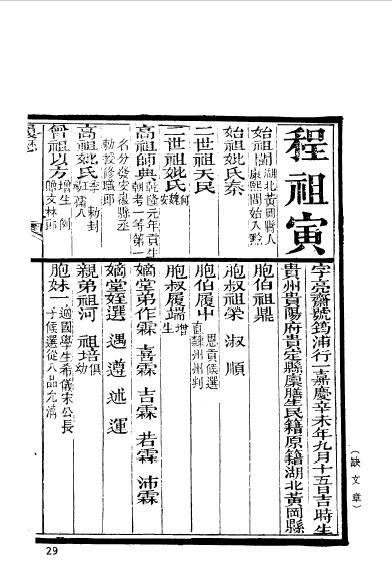 程祖寅
字亮齋號筠浦行一嘉慶辛未年九月十五日吉時生
貴州貴陽府貴定縣廩膳生民籍原籍湖北黃岡縣
始祖
湖北黃岡縣人
康熙間始入黔
始祖妣氏秦
二世祖天民
二世祖妣氏
何
魏
高祖師典
乾隆元年貢生
朝考一等第一
名分發安徽縣丞
勅授修職郎
高祖妣氏
李
勅封
曾祖以方
增生
例
贈文林郎
胞伯祖鼎
胞叔祖榮 淑 順
胞伯履中
恩貢候選
直隸州州判
胞叔履端
增
生
嫡堂弟作霖 喜霖 吉霖 若霖 沛霖
嫡堂姪選 遇 遵 述 運
親弟祖河 祖培
俱
幼
胞妹一
適國學生希儀宋公長
子候選從八品允清
(缺文章)
29